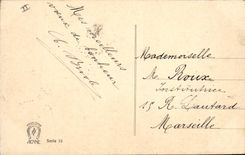 Meilleurs
vœux de bonheur
Mademoiselle
Roux
Institutrice
15 R. Lautard
Marseille
Serie 18